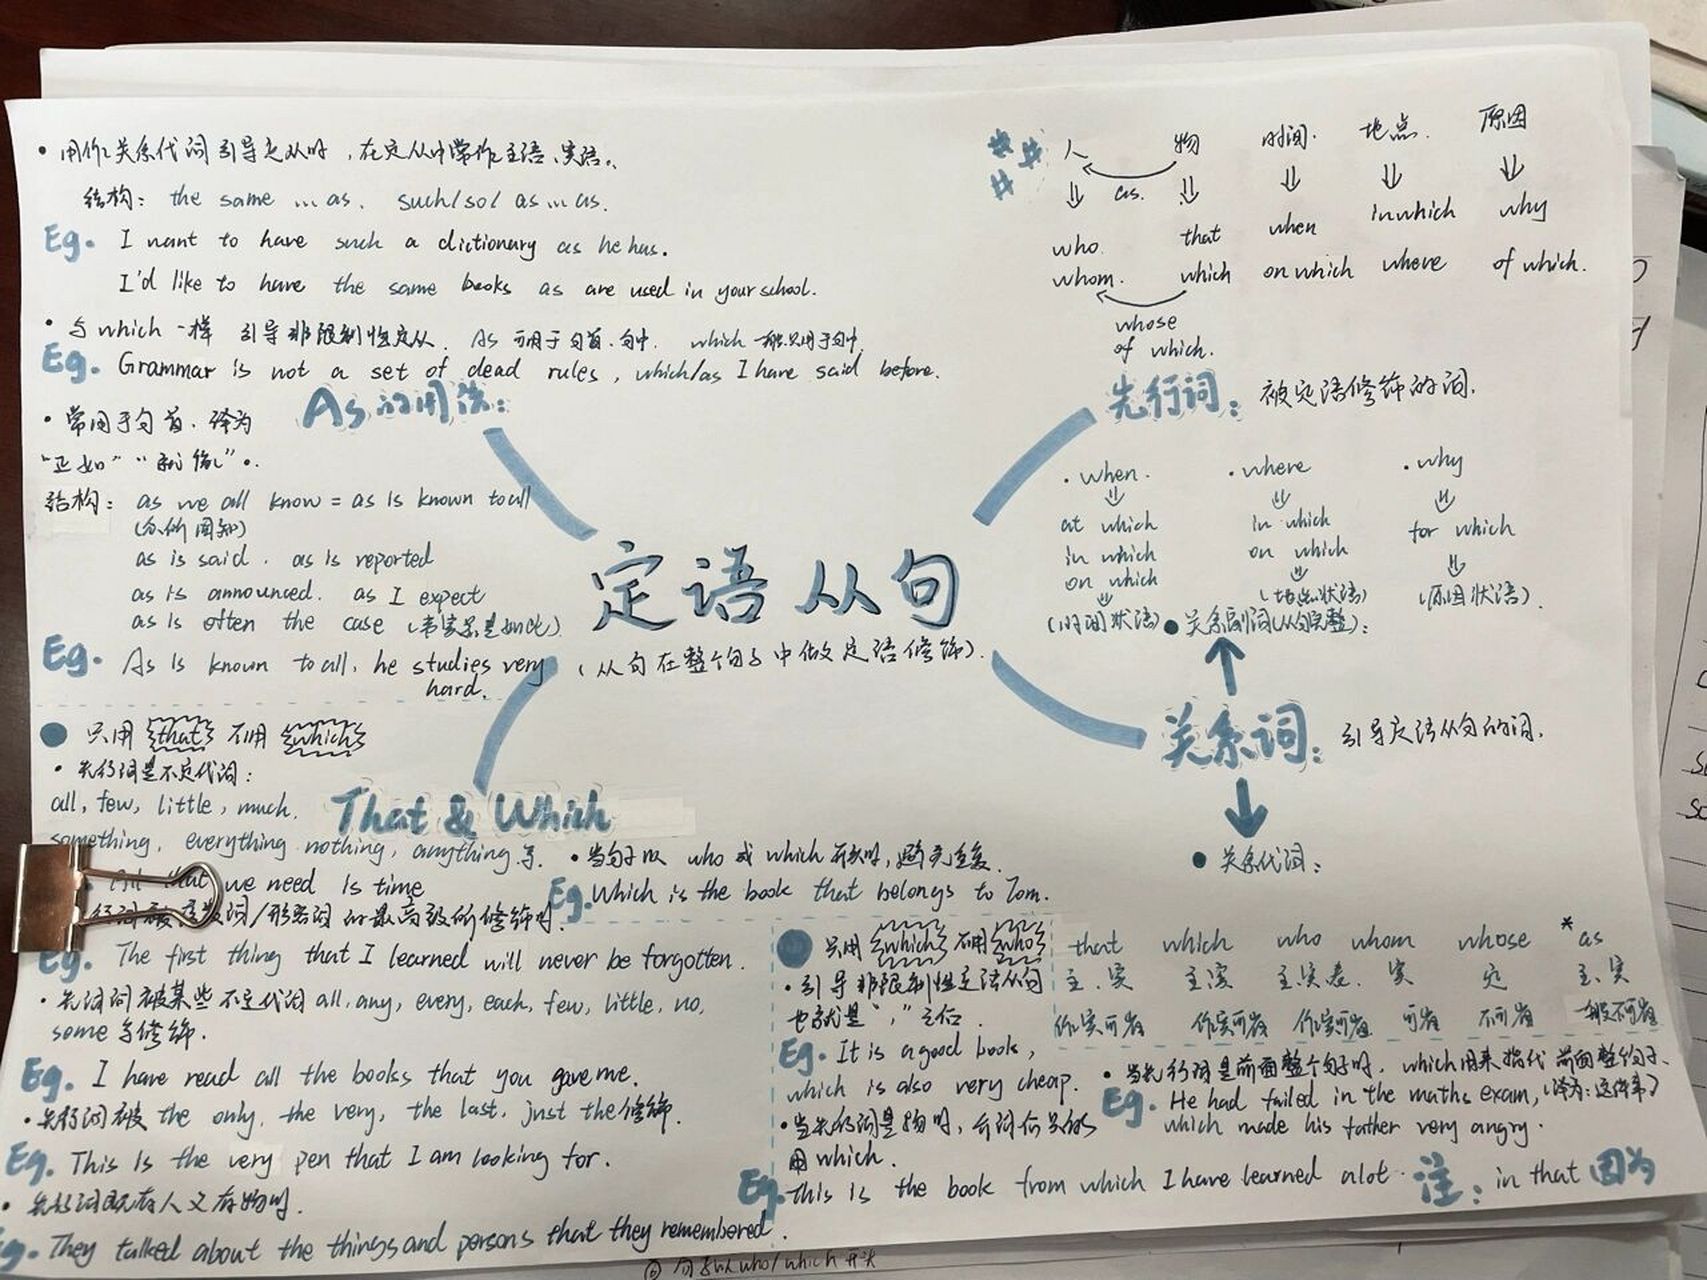 • 用作关系代词引导定从时，在定从中常作主语、宾语。
结构： the same ... as. such/so/ as ... as.
Eg. I want to have such a dictionary as he has.
I'd like to have the same books as are used in your school.
• 与which一样 引导非限制性定从. As 可用于句首.句中. which一般只用于句中.
Eg. Grammar is not a set of dead rules, which/as I have said before.
As的用法：
• 常用于句首，译为
"正如" "就像"。
结构： as we all know = as is known to all
(众所周知)
as is said. as is reported
as is announced. as I expect
as is often the case (事实总是如此)
Eg. As is known to all, he studies very
hard.
人 物 时间. 地点. 原因
as.
who. that when in which why
whom. which on which where of which.
whose
of which.
先行词： 被定语修饰的词.
• when. • where • why
at which in which for which
in which on which
on which
(时间状语) (地点状语) (原因状语).
• 关系副词(从句完整)：
定语从句
(从句在整个句子中做定语修饰).
关系词： 引导定语从句的词.
• 关系代词：
that which who whom whose *as
主.宾 主宾 主宾表. 宾 定 主.宾
作宾可省 作宾可省 作宾可省 可省 不可省 一般不可省
That & Which
只用 that 不用 which
• 先行词是不定代词：
all, few, little, much.
something, everything nothing, anything 等.
that we need is time
行词被序数词/形容词的最高级所修饰时.
Eg. The first thing that I learned will never be forgotten.
• 先行词被某些不定代词 all, any, every, each, few, little, no,
some等修饰.
Eg. I have read all the books that you gave me.
• 先行词被 the only, the very, the last, just the修饰.
Eg. This is the very pen that I am looking for.
• 先行词既有人又有物时.
They talked about the things and persons that they remembered.
• 当句子以 who 或 which 开头时，避免重复.
Eg. Which is the book that belongs to Tom.
只用 which 不用 who
• 引导非限制性定语从句
也就是","之后.
Eg. It is a good book,
which is also very cheap.
• 当先行词是物时，介词后只能
用 which.
Eg. This is the book from which I have learned alot.
• 当先行词是前面整个句子时，which用来指代前面整个句子.
Eg. He had failed in the maths exam, (译为:这件事)
which made his father very angry.
注： in that 因为
句子以who/which开头